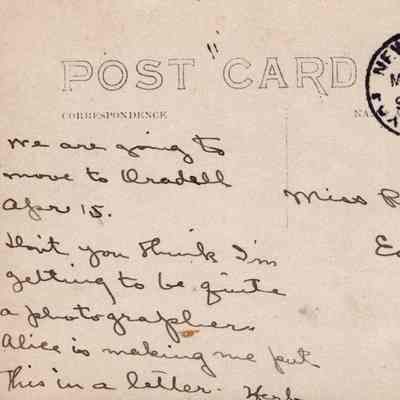 POST CARD
CORRESPONDENCE
NEW
M
We are going to
move to Oradell
Apr 15.
Miss
Don't you think I'm
getting to be quite
a photographer.
Alice is making me put
this in a letter. Herb